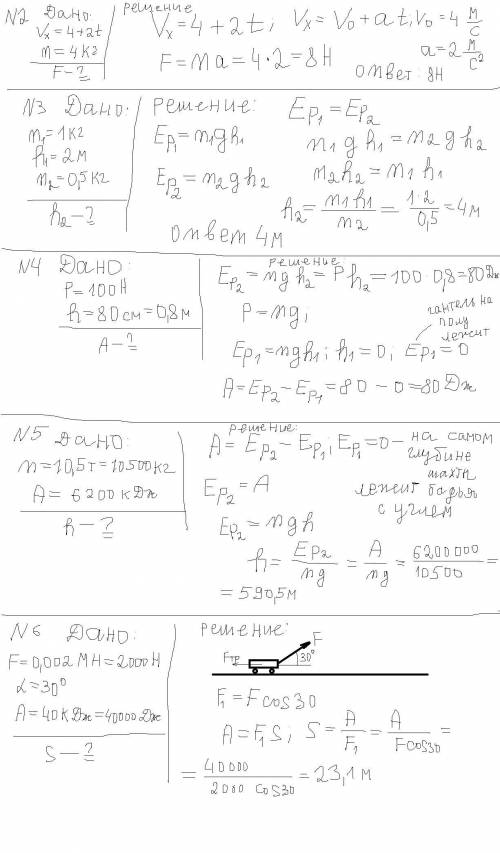 N2 Дано:
Vx=4+2t
m=4кг
F-?
решение
Vx=4+2t; Vx=V0+at; V0=4 м/с
F=ma=4·2=8Н a=2 м/с²
ответ: 8Н
N3 Дано:
m1=1кг
h1=2м
m2=0,5кг
h2-?
решение:
Ep1=Ep2
Ep1=m1gh1
m1gh1=m2gh2
Ep2=m2gh2
m2h2=m1h1
h2=m1h1/m2=1·2/0,5=4м
ответ 4м
N4 Дано:
P=100Н
h=80см=0,8м
A-?
решение:
Ep2=mgh2=Ph2=100·0,8=80Дж
P=mg;
гантель на
полу
лежит
Ep1=mgh1; h1=0; Ep1=0
A=Ep2-Ep1=80-0=80Дж
N5 Дано:
m=10,5т=10500кг
A=6200кДж
h-?
решение:
A=Ep2-Ep1; Ep1=0- на самом
глубине
шахты
лежит бадья
с углем
Ep2=A
Ep2=mgh
h=Ep2/mg=A/mg=6200000/10500=
=590,5м
N6 Дано:
F=0,002МН=2000Н
α=30°
A=40кДж=40000Дж
S-?
решение:
F
Fтр
30°
F1=Fcos30
A=F1S; S=A/F1=A/Fcos30=
=40000/2000 cos30=23,1м